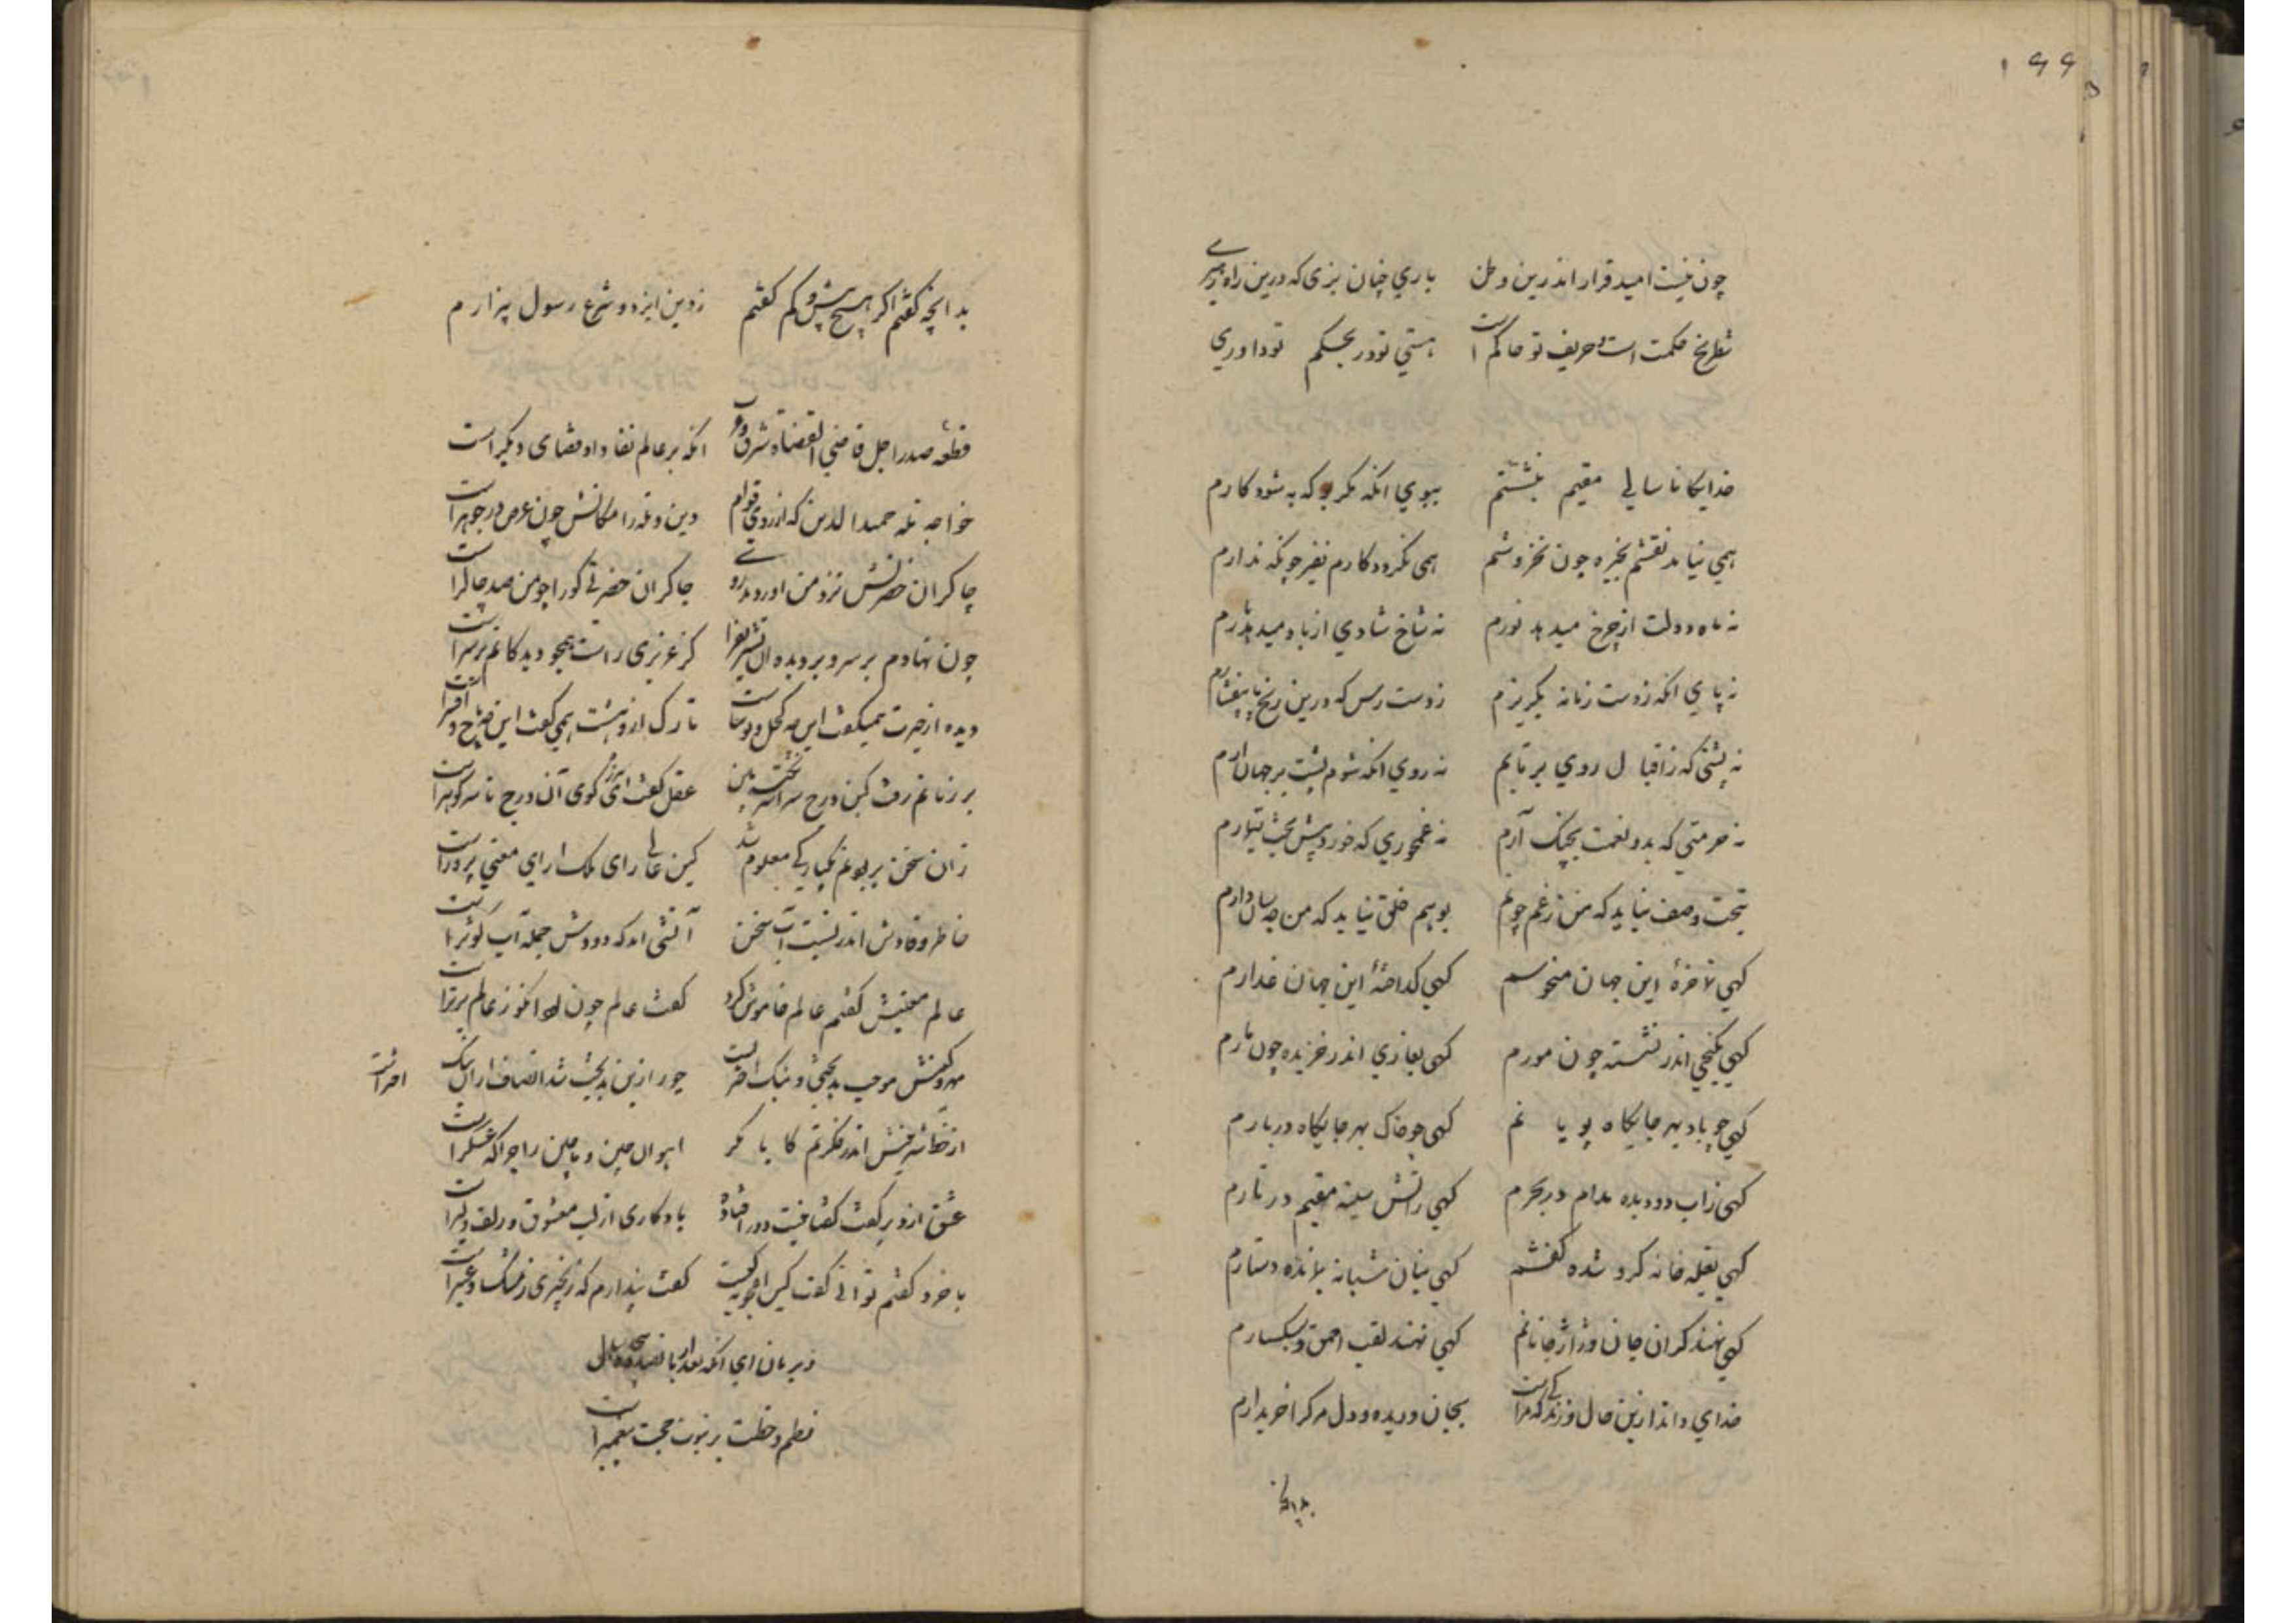 ۱۶۶
چون نیست امید قرار اندرین وطن باری چنان بزی که درین راه
شطرنج حکمت است حریف تو حاکم است هستی تو در بحکم تو داوری
خدایکانا سالی مقیم بنشستم ببوی انکه مکر به شود کارم
همی نیاید نقشم بخیره چون نخروشم همی نکردد کارم نفیر چونکه ندارم
نه ماه دولت از چرخ میدهد نورم نه شاخ شادی از باد میدهد بارم
نه پای انکه ز دست زمانه بکریزم ز دست رس که درین رنج پا بیفشارم
نه پشتی که ز اقبال روی برتابم نه روی انکه شوم پشت بر جهان آرم
نه حرمتی که بدو نعمت بچنک آرم نه غمخوری که خورد پیش بخت تیمارم
بتحت وصف نیاید که من ز غم چونم بوهم خلق نیاید که من چه سان دارم
کهی این جهان منحوسم کهی کداخته این جهان غدارم
کهی بکنجی اندر نشسته چون مورم کهی بغاری اندر خزیده چون مارم
کهی چو باد بهر جایکاه پویانم کهی چو خاک بهر جایکاه دربارم
کهی ز آب دو دیده مدام در بحرم کهی ز آتش سینه مقیم در نارم
کهی بقیله خانه کرو شده کفشم کهی بنان شبانه بمانده دستارم
کهی نهند کران جان و ژاژ خانانم کهی نهند لقب احمق و سبکسارم
خدای داند ازین حال و زندکی که مراست بجان و دیده و دل مرک را خریدارم
بدانچه
بدانچه کفتم اکر هیچ بیش و کم کفتم ز دین ایزد و شرع رسول بیزارم
قطعه صدر اجل قاضی القضاة شرق و غرب انکه بر عالم نفاذ او قضای دیکر است
خواجه مله حمید الدین که از روی قوام دین و مله را مکانش چون عرض در جوهر است
چاکران حضرتش نزد من اوردند دی چاکران حضرتی کورا چو من صد چاکر است
چون نهادم بر سر و بر دیده ان تشریف را کز عزیزی راست همچو دیدکانم بر سر است
دیده از حیرت همیکفت این چه کحل و توتیاست تارک از دهشت همی کفت این چه تاج و افسر است
بر زبانم رفت کین درج سراسر نکته بین عقل کفت ای کوی آن درج تا سر کوهر است
زان سخن پروردنم یکبارکی معلوم شد کین عالی رای ملک ارای معنی پرور است
خاطر وقادش اندر نسبت آب سخن آتشی امد که دودش جمله آب کوثر است
عالم معنیش کفتم عالم خاموش کرد کفت عالم چون کو ز عالم برتر است
مهر و کینش موجب بدبختی و نیک اختریست جور ازین بدبخت شد انصاف ازان نیک اختر است
از خطا اندر فکرتم کایا مکر اهوان چین و ماچین را چراکه عسکر است
عشق ازو برکفت کفتا نیست دور افتاده یادکاری از لب معشوق و زلف دلبر است
با خرد کفتم توانی کفت کین اعجوبه چیست کفت پندارم که زنجیری ز مشک و عنبر است
نظم و خطت بر نبوت حجت پیغمبر است